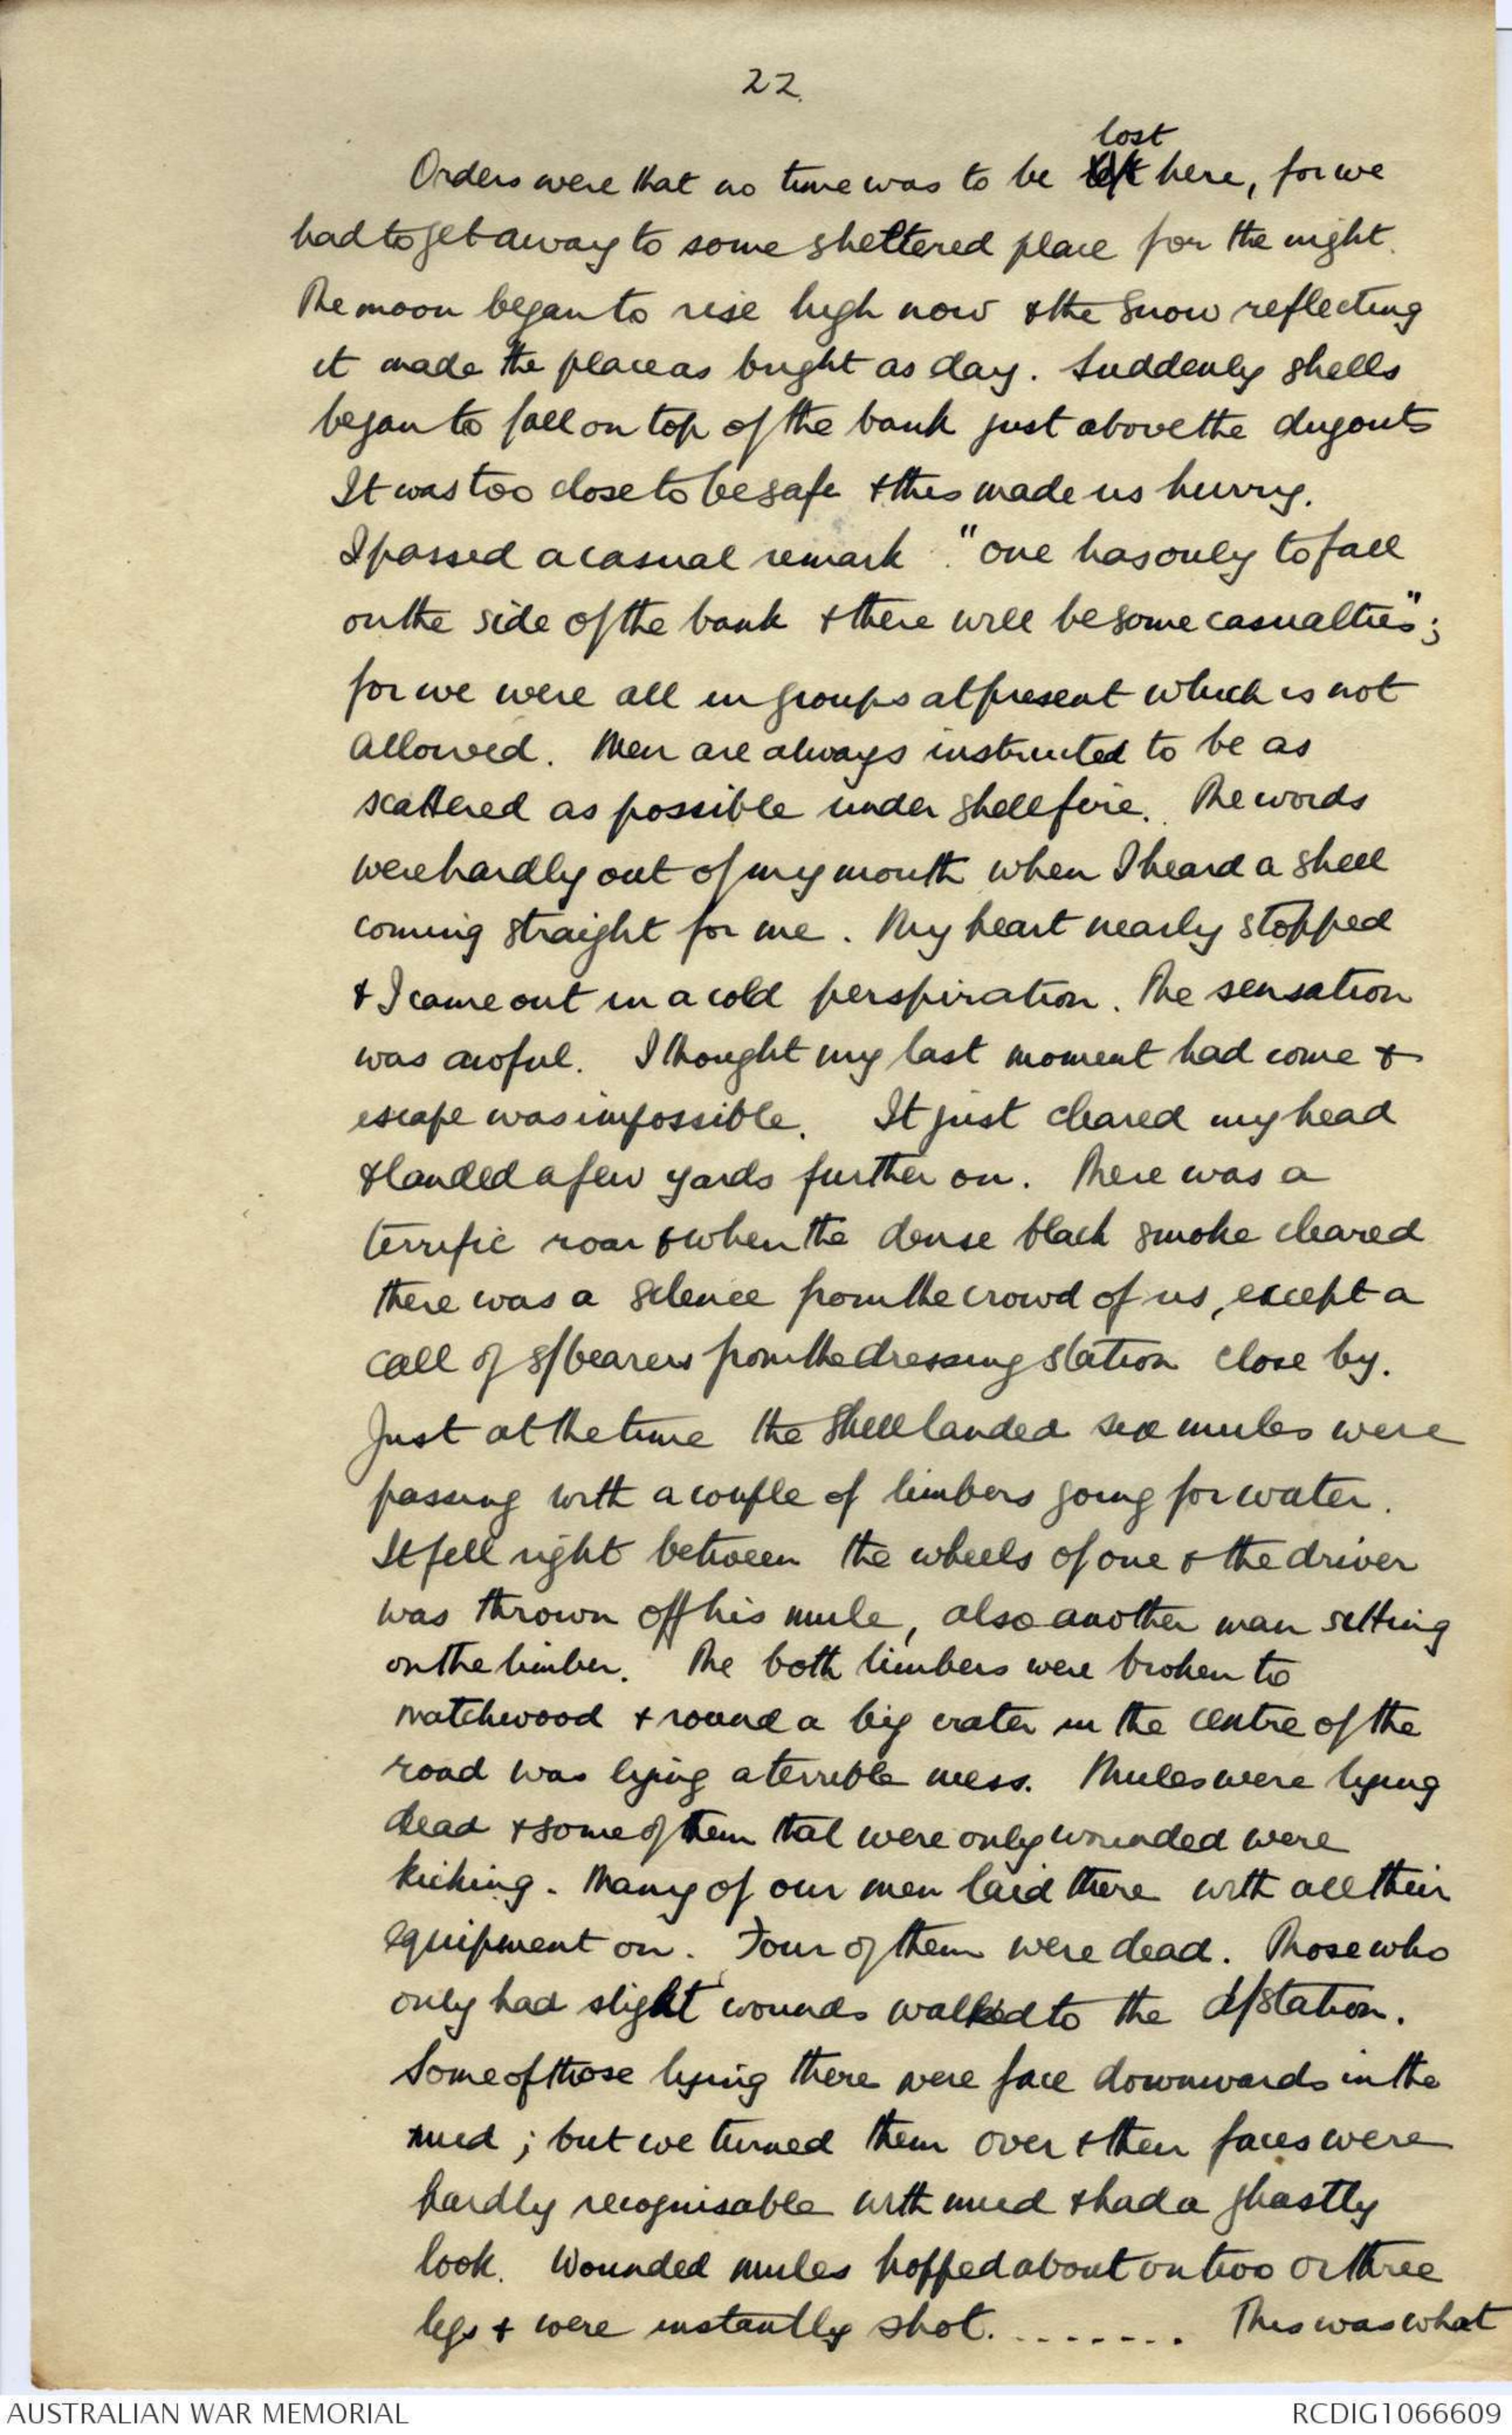 22.
lost
Orders were that no time was to be left here, for we
had to get away to some sheltered place for the night.
The moon began to rise high now & the snow reflecting
it made the place as bright as day. Suddenly shells
began to fall on top of the bank just above the dugouts
It was too close to be safe & this made us hurry.
I passed a casual remark "one has only to fall
on the side of the bank & there will be some casualties";
for we were all in groups at present which is not
allowed. Men are always instructed to be as
scattered as possible under shell fire. The words
were hardly out of my mouth when I heard a shell
coming straight for me. My heart nearly stopped
& I came out in a cold perspiration. The sensation
was awful. I thought my last moment had come &
escape was impossible. It just cleared my head
& landed a few yards further on. There was a
terrific roar & when the dense black smoke cleared
there was a silence from the crowd of us, except a
call of s/bearers from the dressing station close by.
Just at the time the shell landed six mules were
passing with a couple of limbers going for water.
It fell right between the wheels of one & the driver
was thrown off his mule, also another man sitting
on the limber. The both limbers were broken to
matchwood & round a big crater in the centre of the
road was lying a terrible mess. Mules were lying
dead & some of them that were only wounded were
kicking. Many of our men laid there with all their
equipment on. Four of them were dead. Those who
only had slight wounds walked to the d/station.
Some of those lying there were face downwards in the
mud; but we turned them over & their faces were
hardly recognisable with mud & had a ghastly
look. Wounded mules hopped about on two or three
legs & were instantly shot. ........ This was what
AUSTRALIAN WAR MEMORIAL
RCDIG1066609